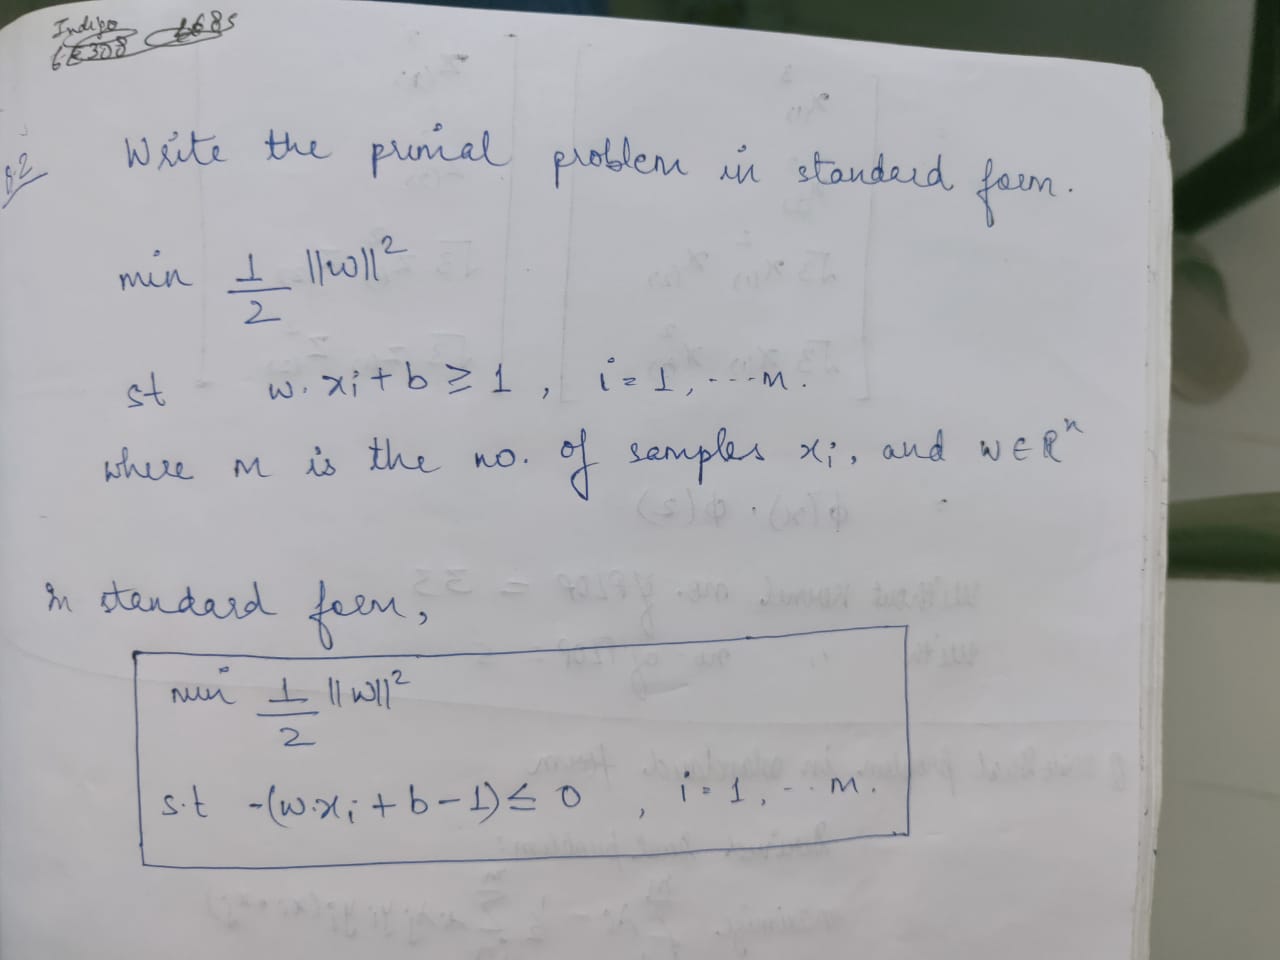 Indigo
6E308 6685
Q.2 Write the primal problem in standard form.
min 1/2 ||w||²
st w. xᵢ + b ≥ 1 , i = 1, ---m.
where m is the no. of samples xᵢ, and w ∈ ℝⁿ
In standard form,
min 1/2 ||w||²
s.t -(w.xᵢ + b - 1) ≤ 0 , i = 1, -- m.